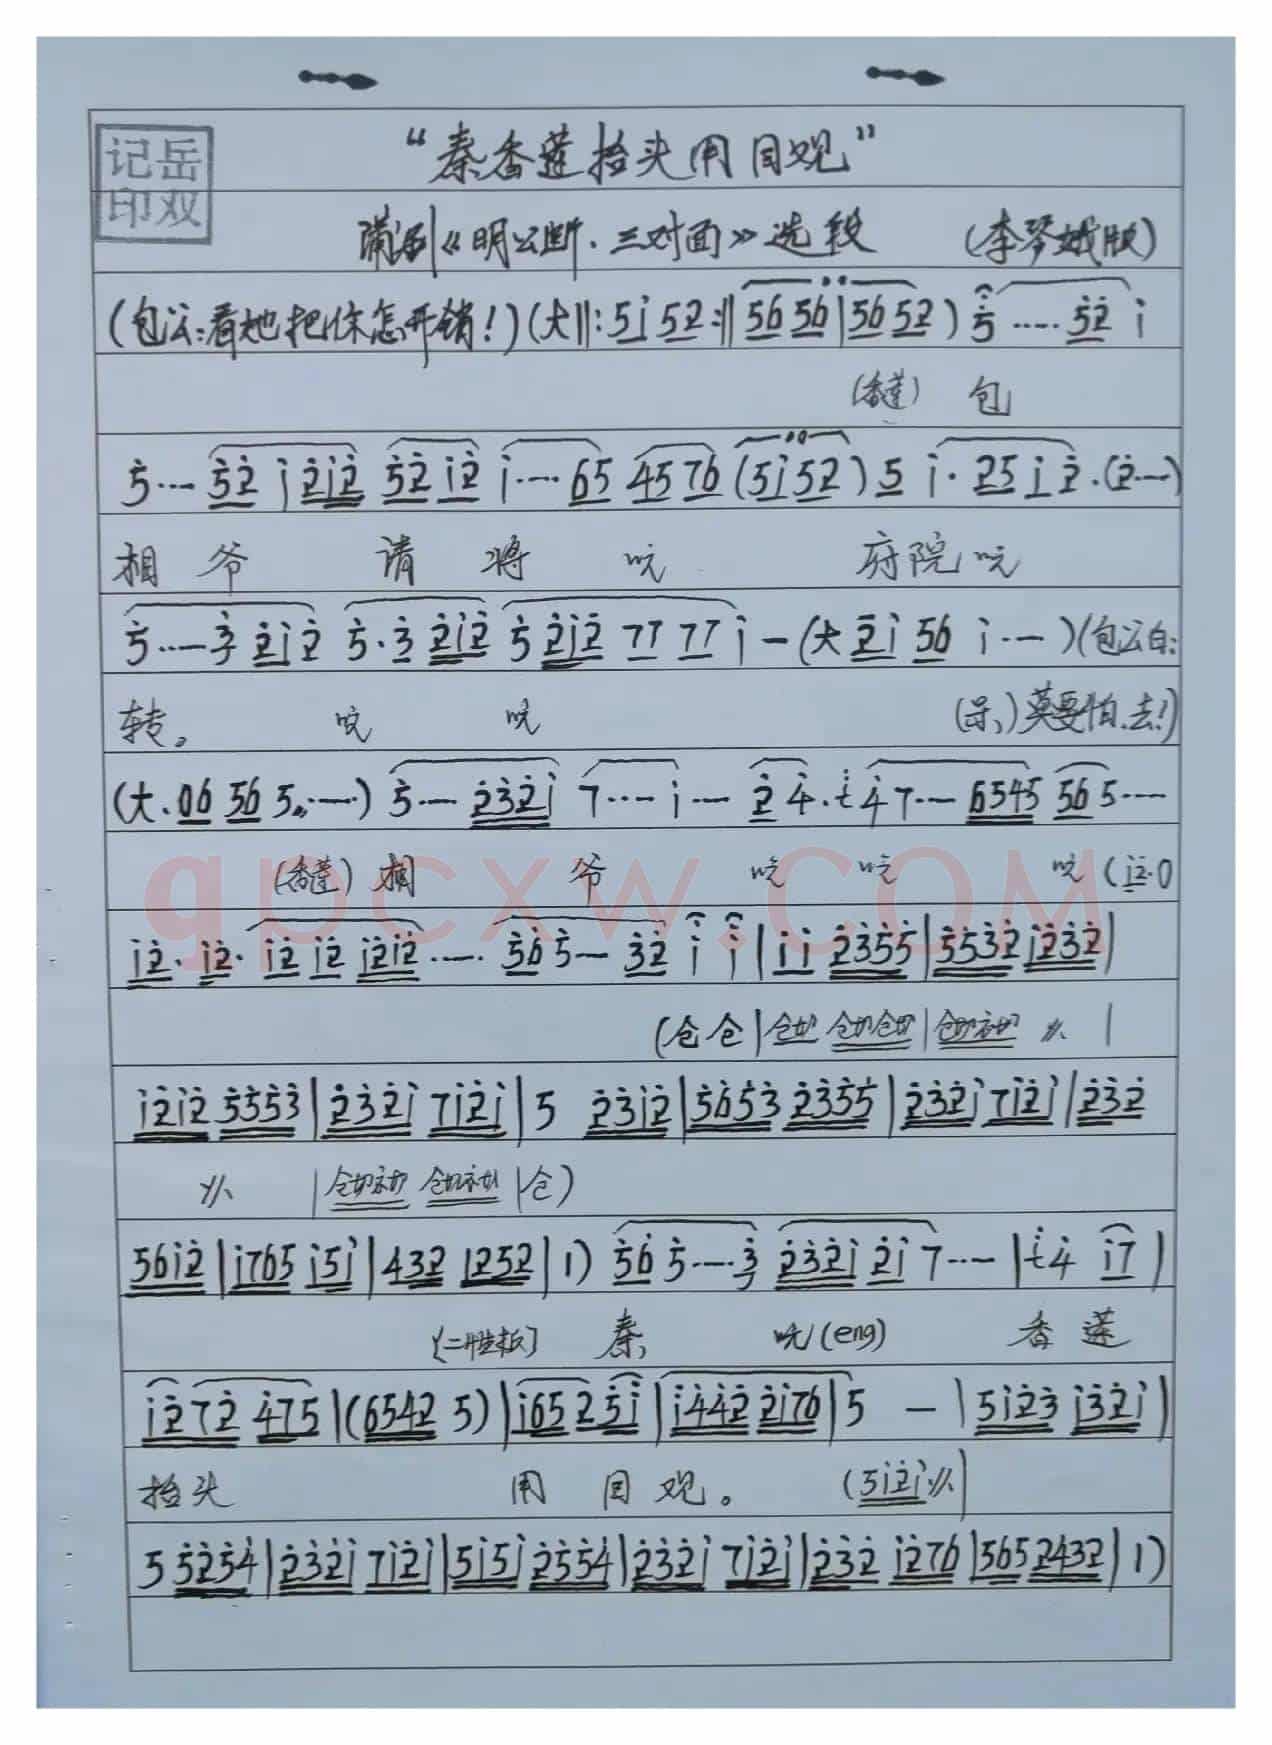 岳双记印
“秦香莲抬头用目观”
蒲剧《明公断·三对面》选段 (李琴娥版)
(包公:看她把你怎开销!)(大‖:5i 52:‖56 56|56 52) 5 ···· 52 i
(香莲) 包
5 ··· 52 i 2i2 52 i2 i ··· 65 45 76 (5i52) 5 i· 25 i 2·(2 ···)
相爷 请将 吭 府院吭
5 ··· 3 2i2 5·3 2i2 5 2i2 77 77 i — (大 2i 56 i ···)(包公白:
转。 吭 吭 莫要怕、去!)
(大·06 56 5 ····) 5 ··· 232i 7 ··· i ··· 2 4· 4 7 ··· 6545 56 5 ····
(香莲) 相 爷 吭 吭 吭 (i2·0
i2· i2· i2 i2 i2i2 ···· 56 5 ··· 32 i i|i i 2355|5532 i232|
(仓仓|
i2i2 5553|232i 7i2i|5 23i2|5653 2355|232i 7i2i|232
仓)
56i2|i765 i5i|432 1252|1) 56 5 ···· 3 232i 2i 7 ···|4 i7|
秦, 吭(eng) 香莲
i272 475|(6542 5)|i65 2 5i|i442 2i76|5 —|5i23 i32i|
抬头 用目观。 (5i2i
5 5254|232i 7i2i|5i5i 2554|232i 7i2i|232 i276|565 2432|1)
qpcxw.COM